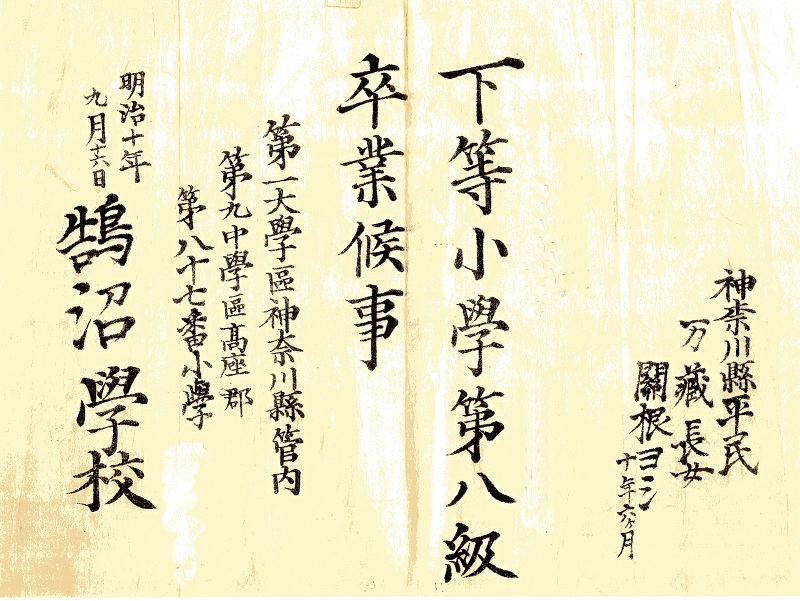 神奈川縣平民
万藏長女
關根ヨシ
十年六ヶ月
下等小學第八級
卒業候事
第一大學區神奈川縣管内
第九中學區高座郡
第八十七番小學
明治十年
九月十六日
鵠沼學校